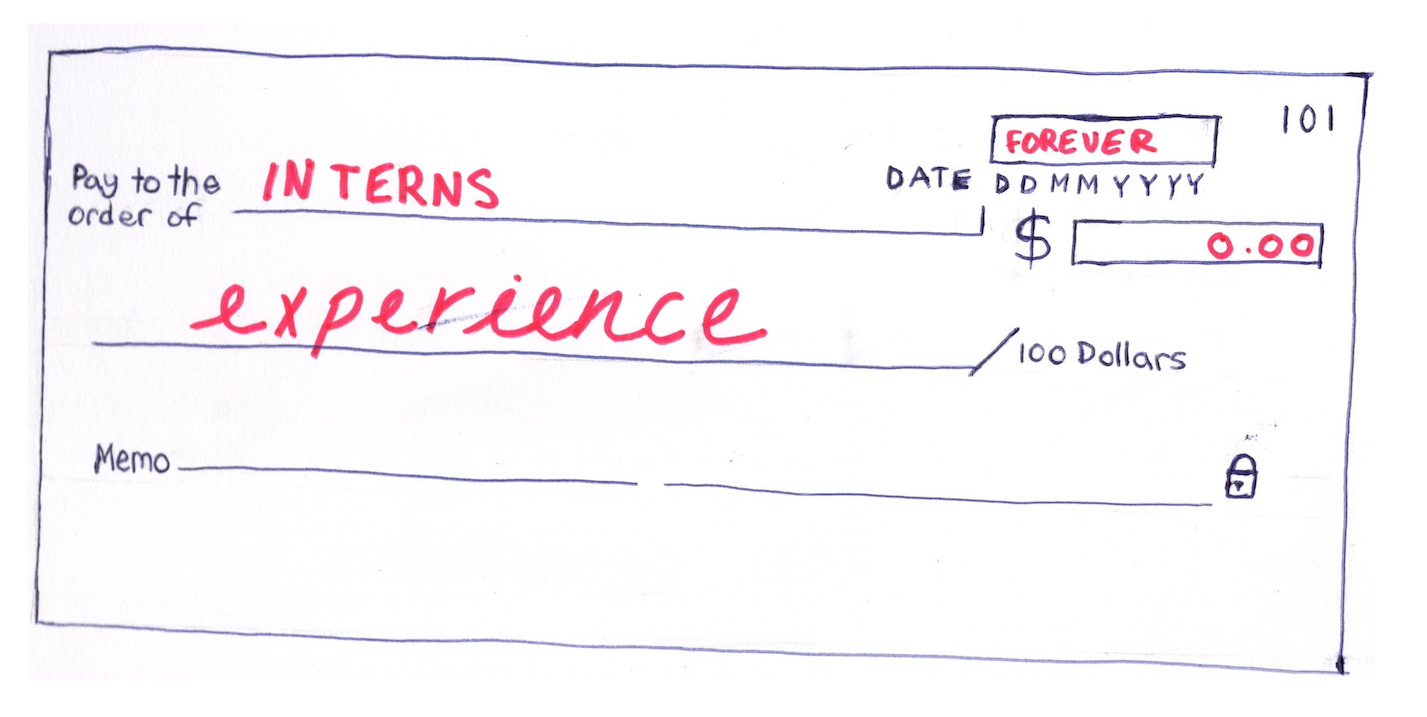 101
FOREVER
Pay to the order of INTERNS
DATE DDMMYYYY
$ 0.00
experience /100 Dollars
Memo